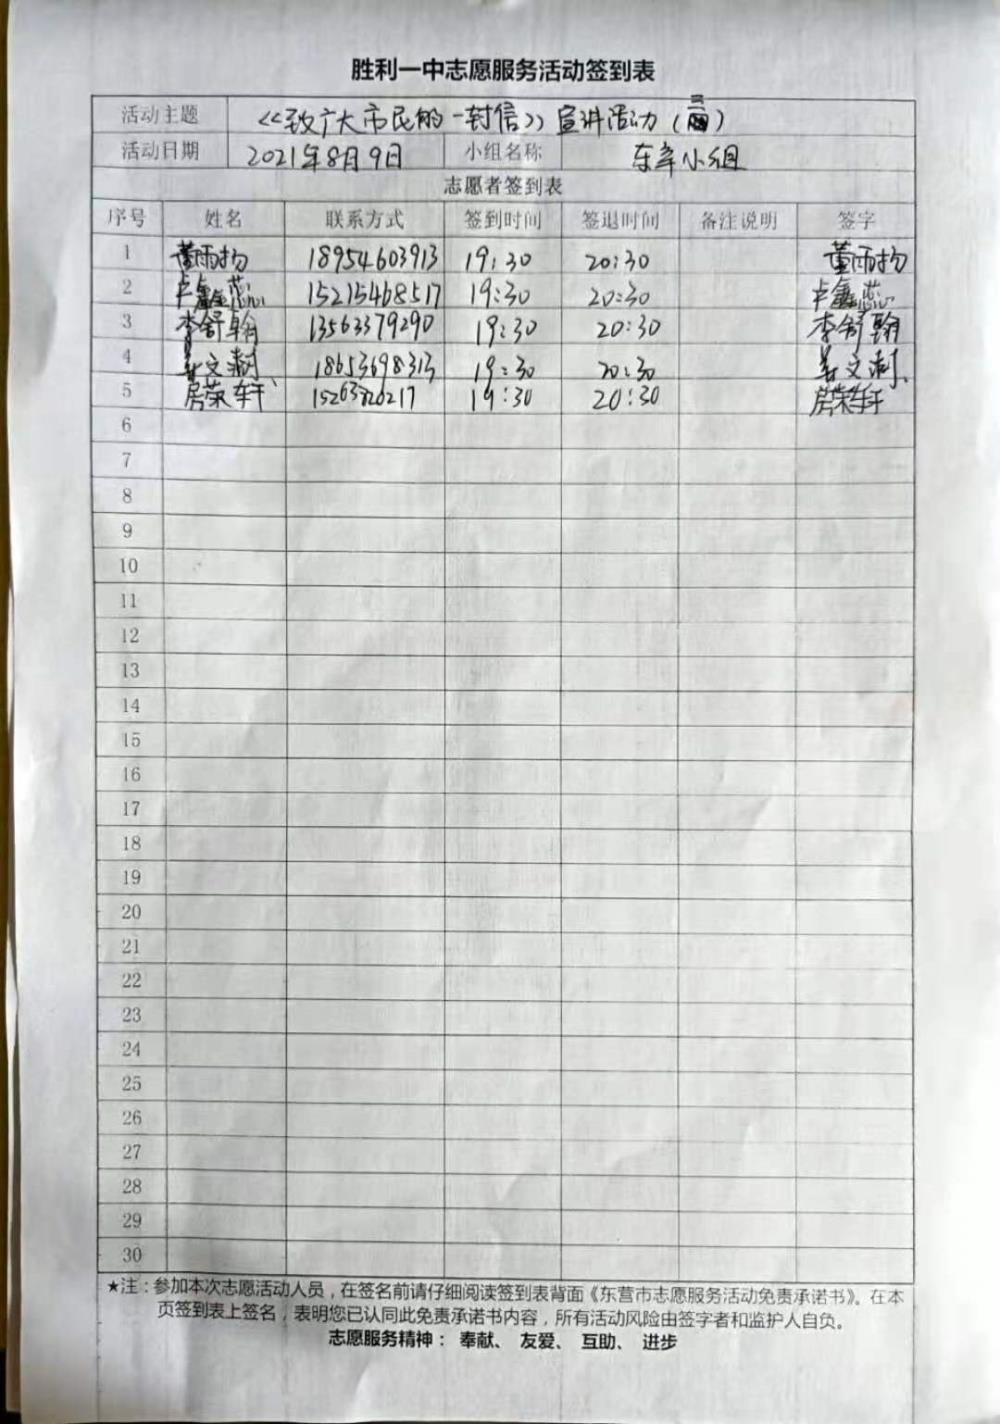 胜利一中志愿服务活动签到表
活动主题 《致广大市民的一封信》宣讲活动（三）
活动日期 2021年8月9日 小组名称 东辛小组
志愿者签到表
序号 姓名 联系方式 签到时间 签退时间 备注说明 签字
1 董雨扬 18954603913 19:30 20:30 董雨扬
2 卢鑫蕊 15215468517 19:30 20:30 卢鑫蕊
3 李舒翰 13563379290 19:30 20:30 李舒翰
4 姜文 18653698313 19:30 20:30 姜文
5 房荣轩 19:30 20:30 房荣轩
6
7
8
9
10
11
12
13
14
15
16
17
18
19
20
21
22
23
24
25
26
27
28
29
30
★注：参加本次志愿活动人员，在签名前请仔细阅读签到表背面《东营市志愿服务活动免责承诺书》。在本
页签到表上签名，表明您已认同此免责承诺书内容，所有活动风险由签字者和监护人自负。
志愿服务精神： 奉献、 友爱、 互助、 进步